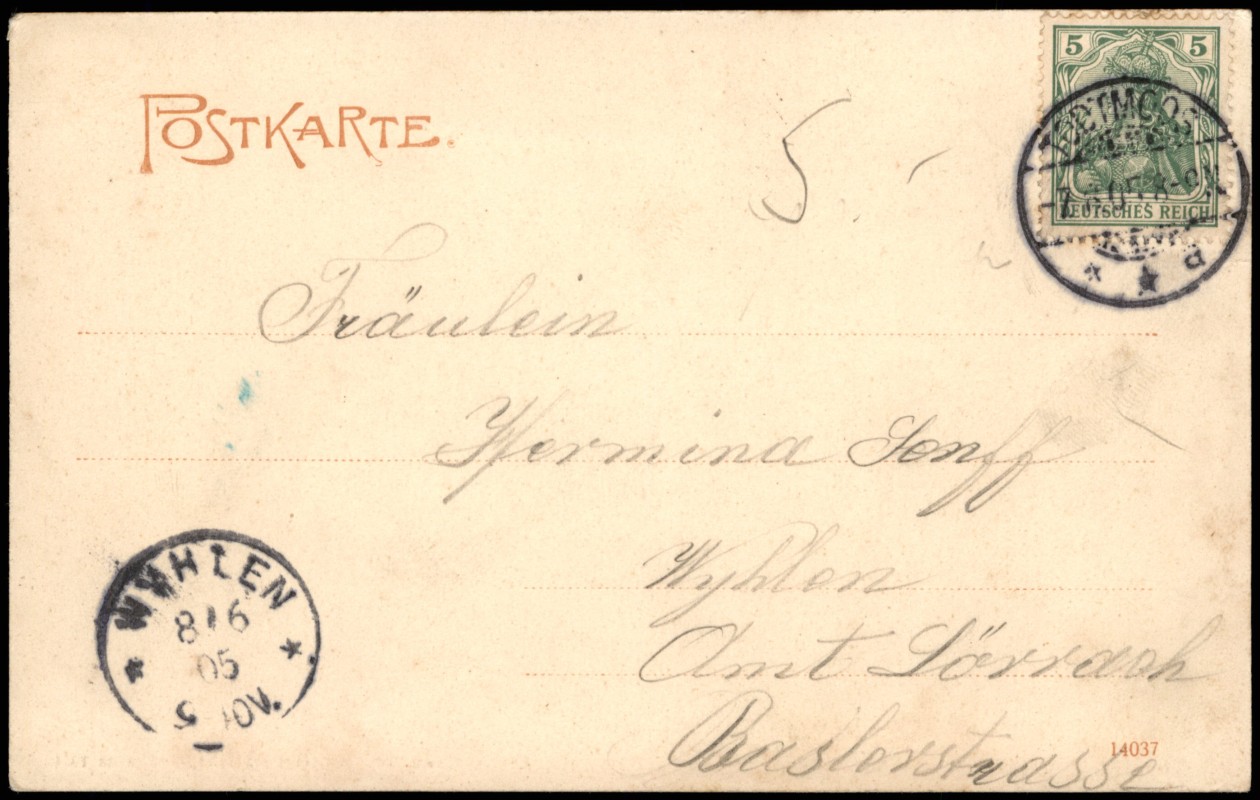 POSTKARTE.
5 5
DEUTSCHES REICH
5
Fräulein
Hermina Senff
Wyhlen
Amt Lörrach
Baslerstrasse
WYHLEN
8/6
05
14037